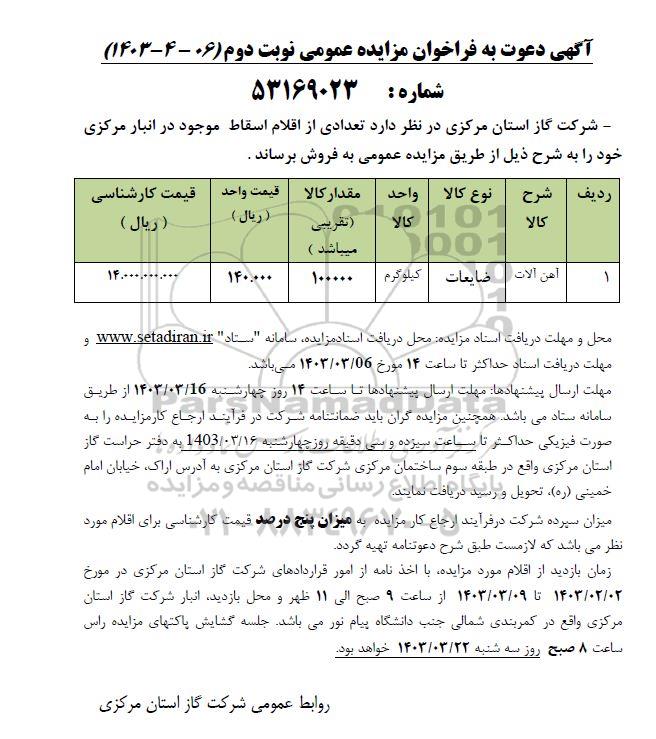 آگهی دعوت به فراخوان مزایده عمومی نوبت دوم (۰۶ - ۴ -۱۴۰۳)
شماره : ۵۳۱۶۹۰۲۳
- شرکت گاز استان مرکزی در نظر دارد تعدادی از اقلام اسقاط موجود در انبار مرکزی
خود را به شرح ذیل از طریق مزایده عمومی به فروش برساند .
ردیف شرح کالا نوع کالا واحد کالا مقدار کالا (تقریبی میباشد ) قیمت واحد ( ریال ) قیمت کارشناسی ( ریال )
۱ آهن آلات ضایعات کیلوگرم ۱۰۰۰۰۰ ۱۴۰.۰۰۰ ۱۴.۰۰۰.۰۰۰.۰۰۰
محل و مهلت دریافت اسناد مزایده: محل دریافت اسنادمزایده، سامانه "ستاد" www.setadiran.ir و
مهلت دریافت اسناد حداکثر تا ساعت ۱۴ مورخ ۱۴۰۳/۰۳/06 می‌باشد.
مهلت ارسال پیشنهادها: مهلت ارسال پیشنهادها تا ساعت ۱۴ روز چهارشنبه ۱۴۰۳/۰۳/16 از طریق
سامانه ستاد می باشد. همچنین مزایده گران باید ضمانتنامه شرکت در فرآیند ارجاع کارمزایده را به
صورت فیزیکی حداکثر تا ساعت سیزده و سی دقیقه روزچهارشنبه 1403/۰۳/۱۶ به دفتر حراست گاز
استان مرکزی واقع در طبقه سوم ساختمان مرکزی شرکت گاز استان مرکزی به آدرس اراک، خیابان امام
خمینی (ره)، تحویل و رسید دریافت نمایند.
میزان سپرده شرکت درفرآیند ارجاع کار مزایده به میزان پنج درصد قیمت کارشناسی برای اقلام مورد
نظر می باشد که لازمست طبق شرح دعوتنامه تهیه گردد.
زمان بازدید از اقلام مورد مزایده، با اخذ نامه از امور قراردادهای شرکت گاز استان مرکزی در مورخ
۱۴۰۳/۰۲/۰۲ تا ۱۴۰۳/۰۳/۰۹ از ساعت ۹ صبح الی ۱۱ ظهر و محل بازدید، انبار شرکت گاز استان
مرکزی واقع در کمربندی شمالی جنب دانشگاه پیام نور می باشد. جلسه گشایش پاکتهای مزایده راس
ساعت ۸ صبح روز سه شنبه ۱۴۰۳/۰۳/۲۲ خواهد بود.
روابط عمومی شرکت گاز استان مرکزی
ParsNamadData
پایگاه اطلاع رسانی مناقصه و مزایده
۰۲۱-۸۸۳۴۹۶۷۰-۵